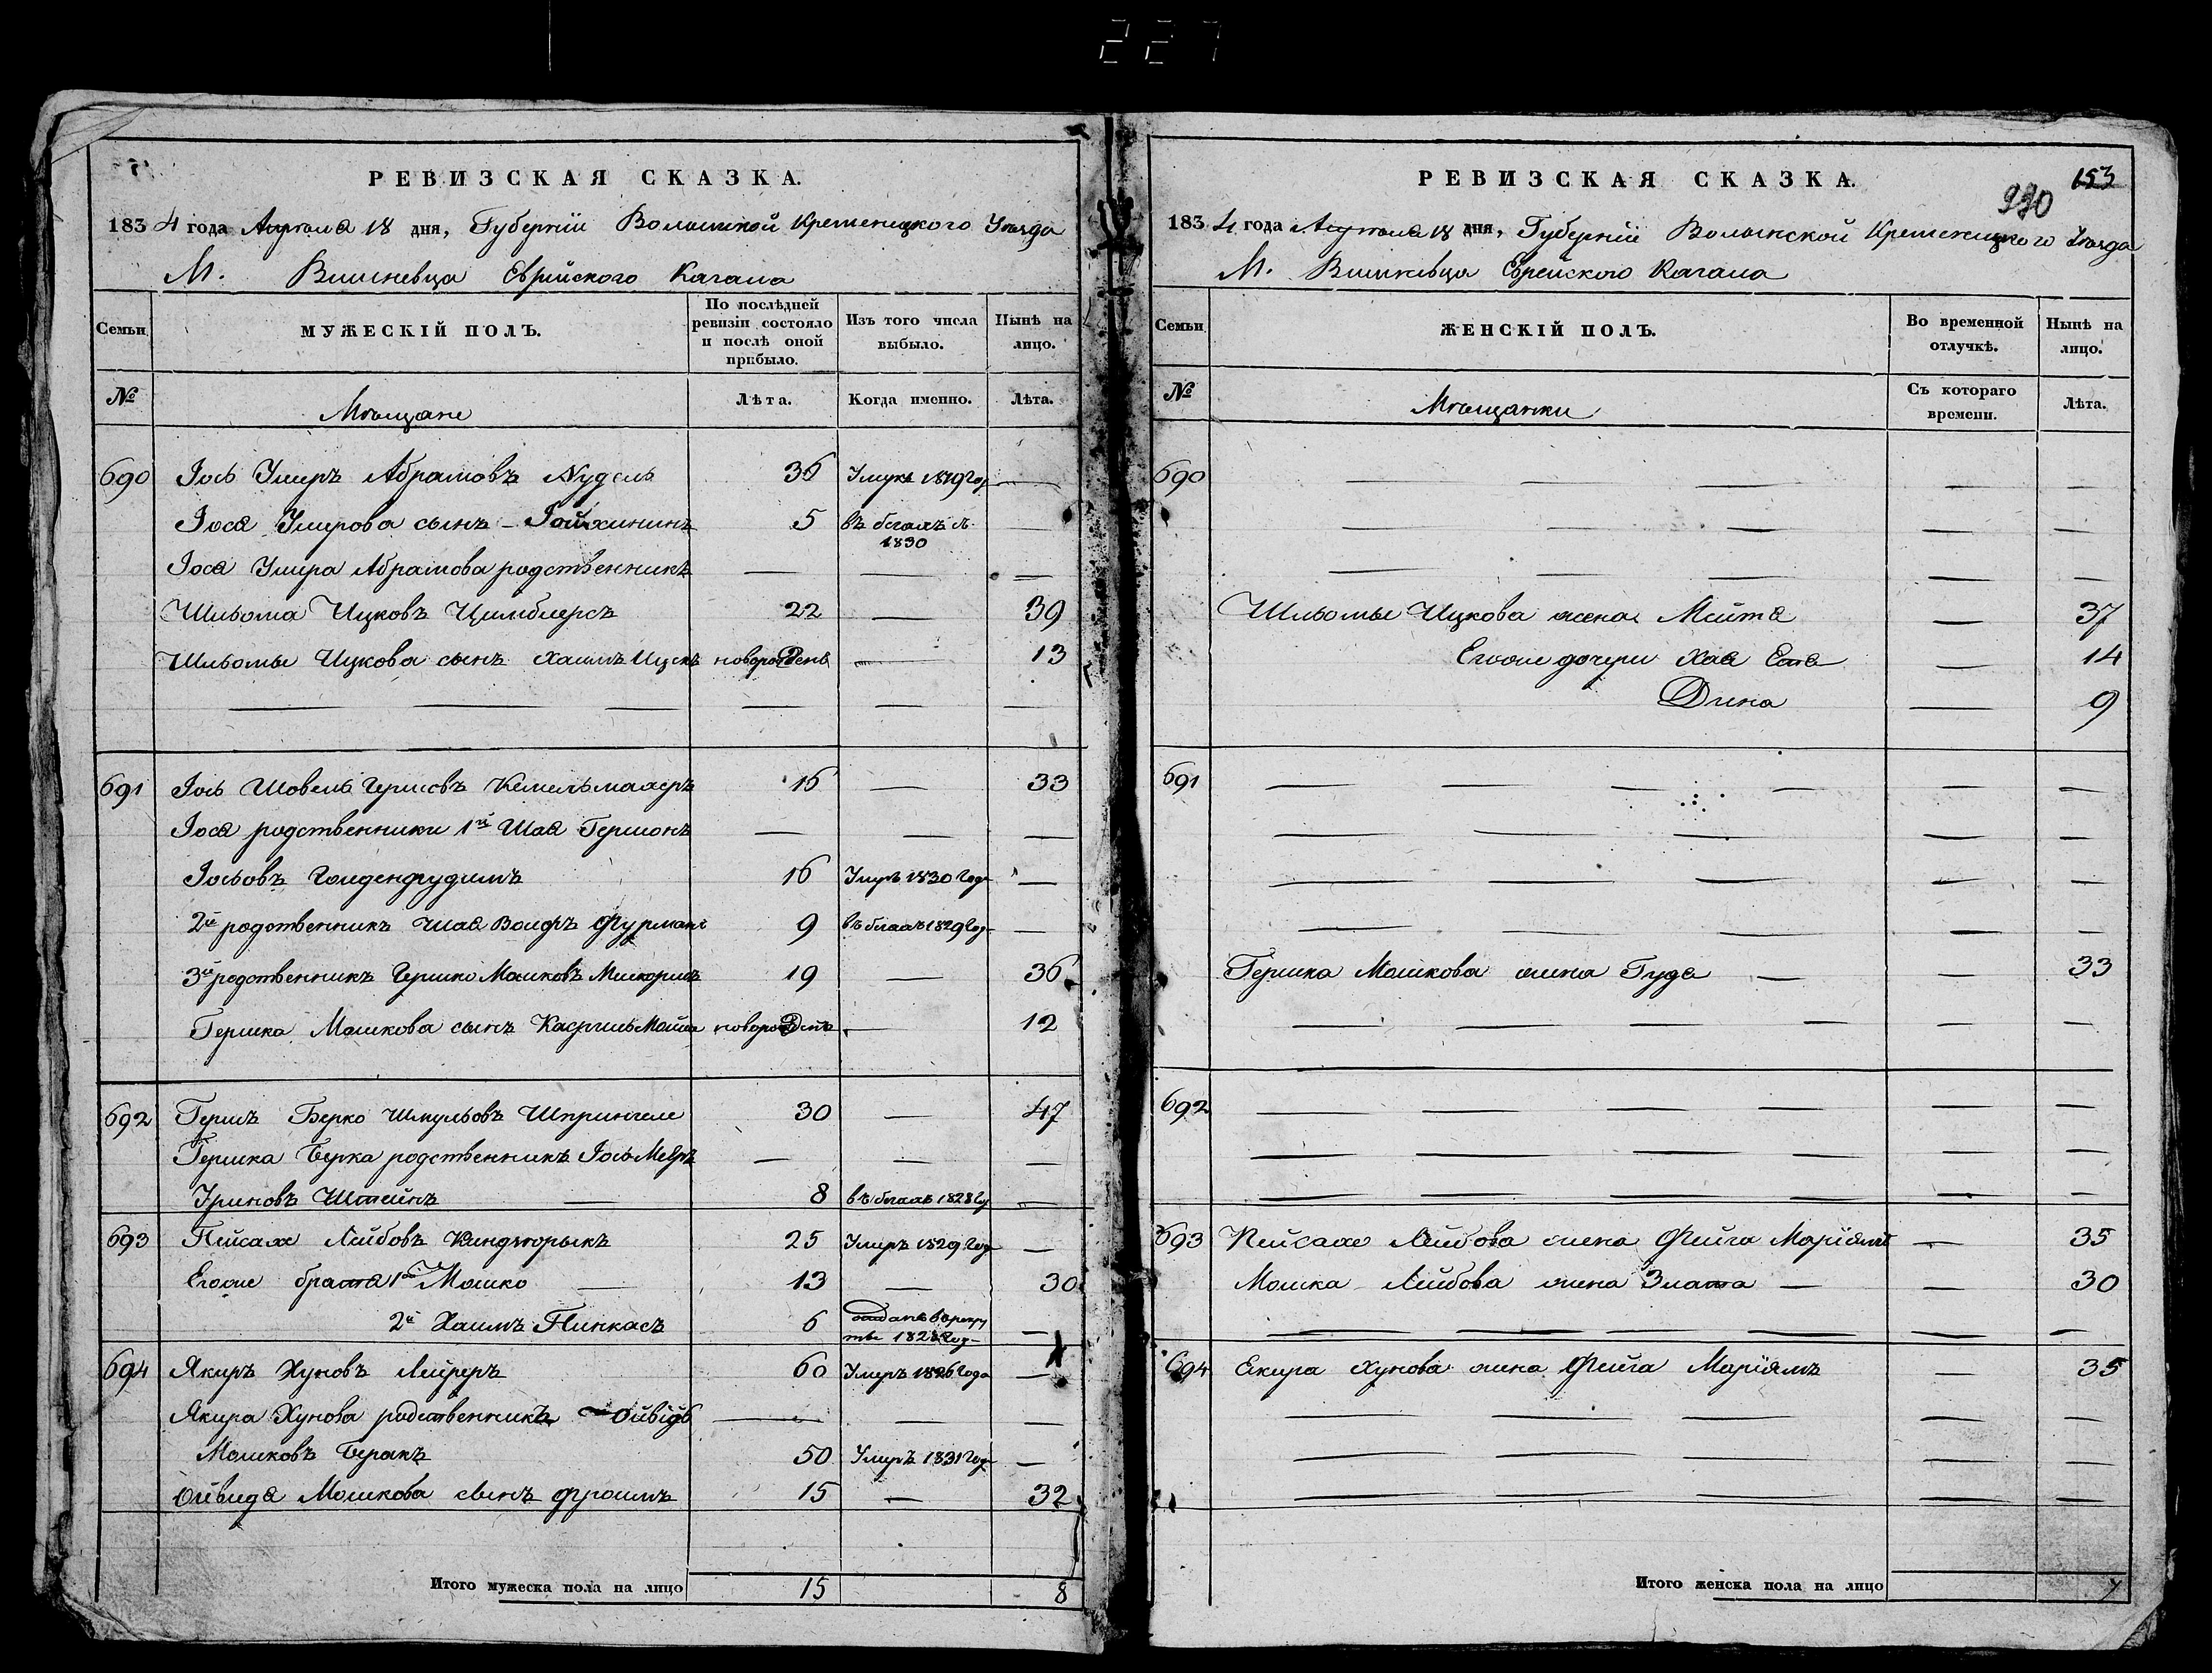 227
РЕВИЗСКАЯ СКАЗКА.
1834 года Апреля 18 дня, Губернiи Волынской Кременецкого Уезда
М. Вишневца Еврейского Кагала
Семьи
МУЖЕСКIЙ ПОЛЪ.
По послѣдней ревизiи состояло и послѣ оной прибыло.
Изъ того числа выбыло.
Нынѣ на лицо.
№
Мѣщане
Лѣта.
Когда именно.
Лѣта.
690 Iось Умеръ Абрамовъ Нудель 36 1829 —
Iося Умерова сынъ 5 въ бегахъ 1830 —
Iося Умера Абрамова родственникъ — — —
Шльома Ицковъ Цимблеръ 22 — 39
Шльомы Ицкова сынъ Хаимъ Ицекъ новорожденъ — 13
— — — — — —
691 Iось Шовель Кемельмахеръ 16 — 33
Iося родственники 1й Шая Гершонъ — — —
Iосьовъ 16 Умеръ 1830 Года —
2й родственникъ Шая Волфъ Фурманъ 9 въ бегахъ 1829 Год —
3й родственникъ Гершко Мошковъ 19 — 36
Гершка Мошкова сынъ Касриль новорожденъ — 12
692 Гершъ Берко Шмульовъ 30 — 47
Гершка Берка родственникъ Iось Меръ — — —
Штейнъ — 8 въ бегахъ 1828 —
693 Пейсах Лейбовъ 25 Умеръ 1829 Год —
Егоже брата 1й Мошко — 13 — 30
2й Хаимъ Пинкасъ 6 отданъ в рекруты 1828 Год —
694 Якиръ Хуновъ 60 Умеръ 1826 Года —
Якира Хунова родственникъ — — — —
Мошковъ 50 Умеръ 1831 Год —
Мошкова сынъ Фроимъ 15 — 32
Итого мужеска пола на лицо 15 8
РЕВИЗСКАЯ СКАЗКА.
153
1834 года Апреля 18 дня, Губернiи Волынской Кременецкого Уезда
М. Вишневца Еврейского Кагала
Семьи
ЖЕНСКIЙ ПОЛЪ.
Во временной отлучкѣ.
Нынѣ на лицо.
№
Мѣщанки
Съ котораго времени.
Лѣта.
690 — — — — —
— — — — —
— — — — —
Шльомы Ицкова жена Мейта — 37
Егоже дочери Хая — 14
Дина — 9
691 — — — — — —
— — — — —
— — — — —
— — — — —
Гершка Мошкова жена Гудя — — 33
— — — — — —
— — — — — —
692 — — — — — —
— — — — — —
— — — — — —
693 Пейсаха Лейбова жена Фейга Марiямъ — 35
Мошка Лейбова жена Злата — — 30
— — — — — —
694 Екира Хунова жена Фейга Марiямъ — 35
— — — — —
— — — —
— — — — —
Итого женска пола на лицо 7